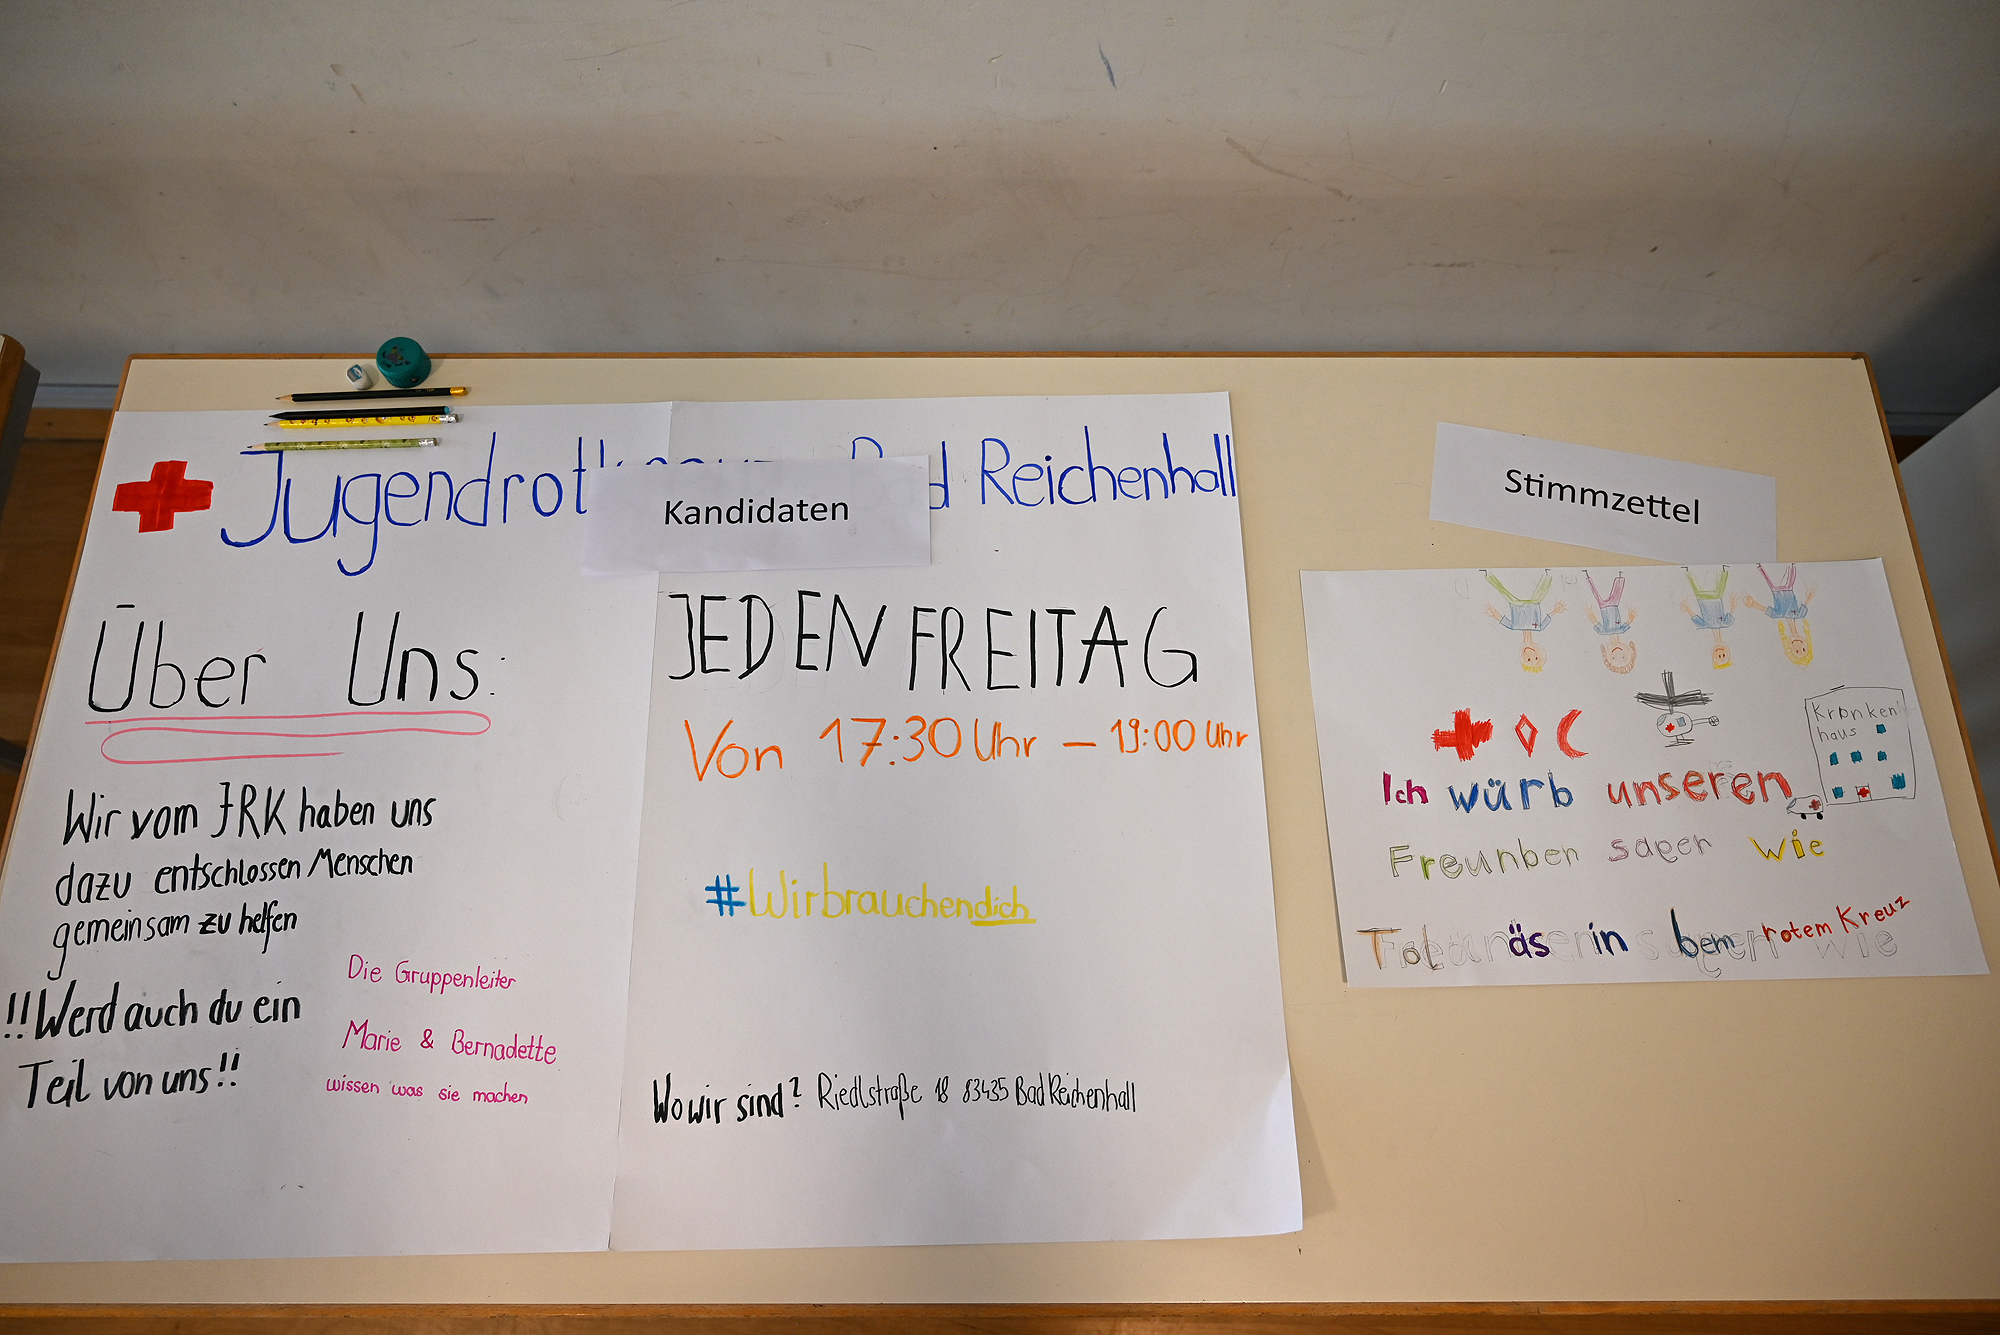 Jugendrot Bad Reichenhall
Kandidaten
Über Uns:
Wir vom JRK haben uns
dazu entschlossen Menschen
gemeinsam zu helfen
!!Werd auch du ein
Teil von uns!!
Die Gruppenleiter
Marie & Bernadette
wissen was sie machen
JEDEN FREITAG
Von 17:30 Uhr – 19:00 Uhr
#Wirbrauchendich
Wo wir sind? Riedlstraße 18 83435 Bad Reichenhall
Stimmzettel
Kranken
haus
Ich würb unseren
Freunben sagen wie
Tol äs in bem rotem Kreuz